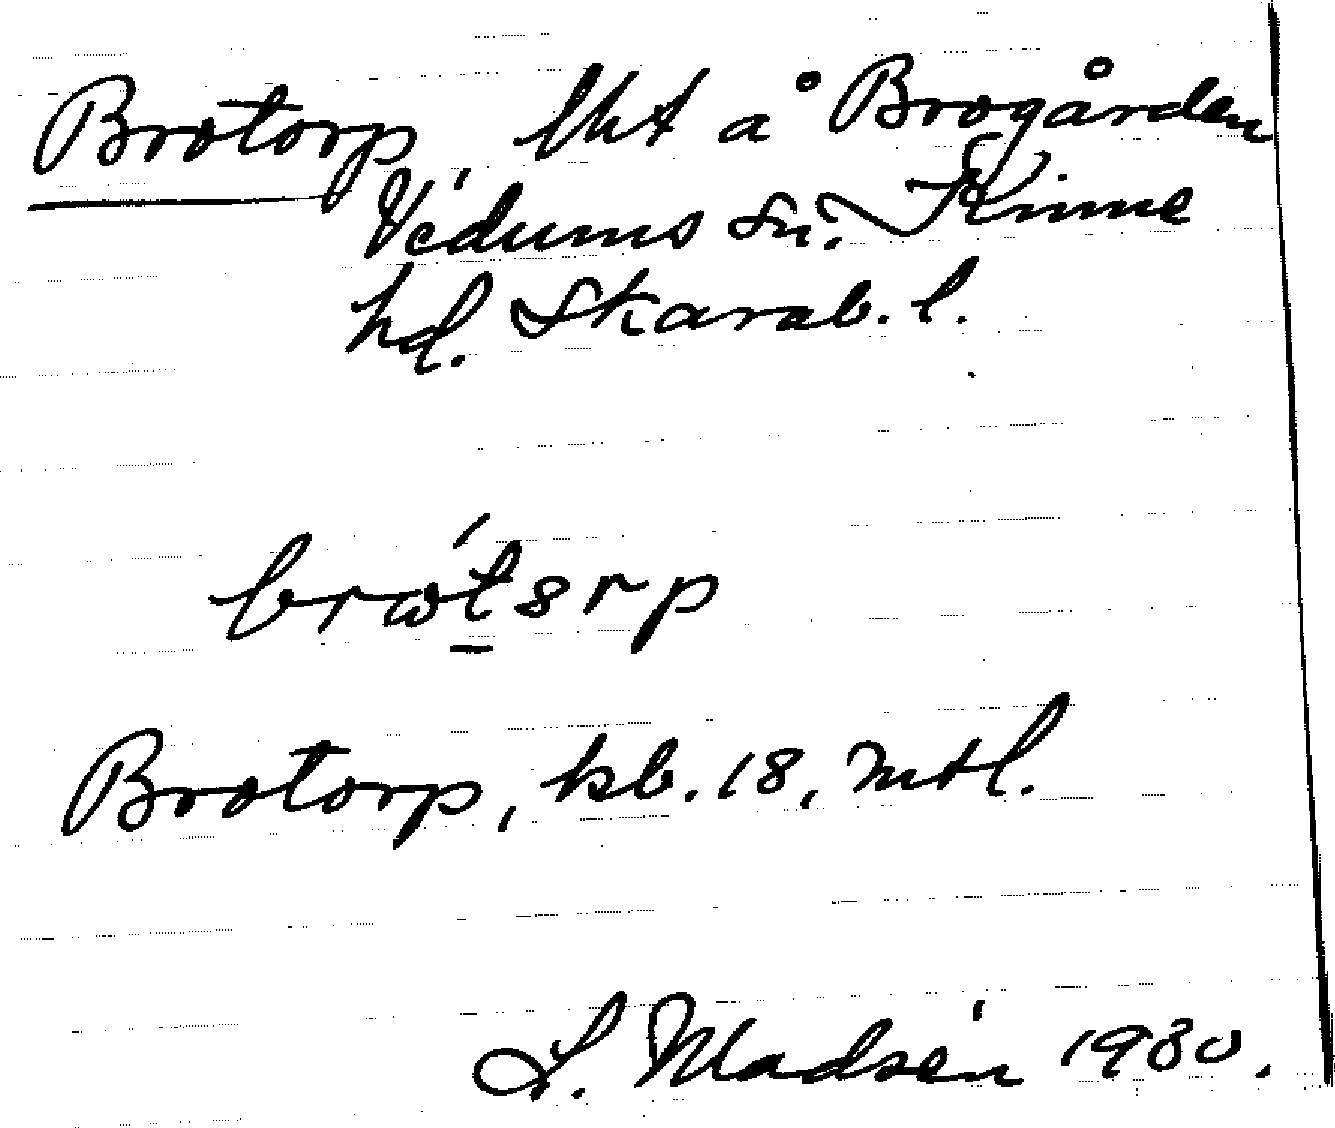 Brotorp, lht å Brogården
Vedums sn. Kinne
hd. Skarab. l.
brωt́ȣrp
Brotorp, kb. 18, mtl.
L. Madsén 1930.